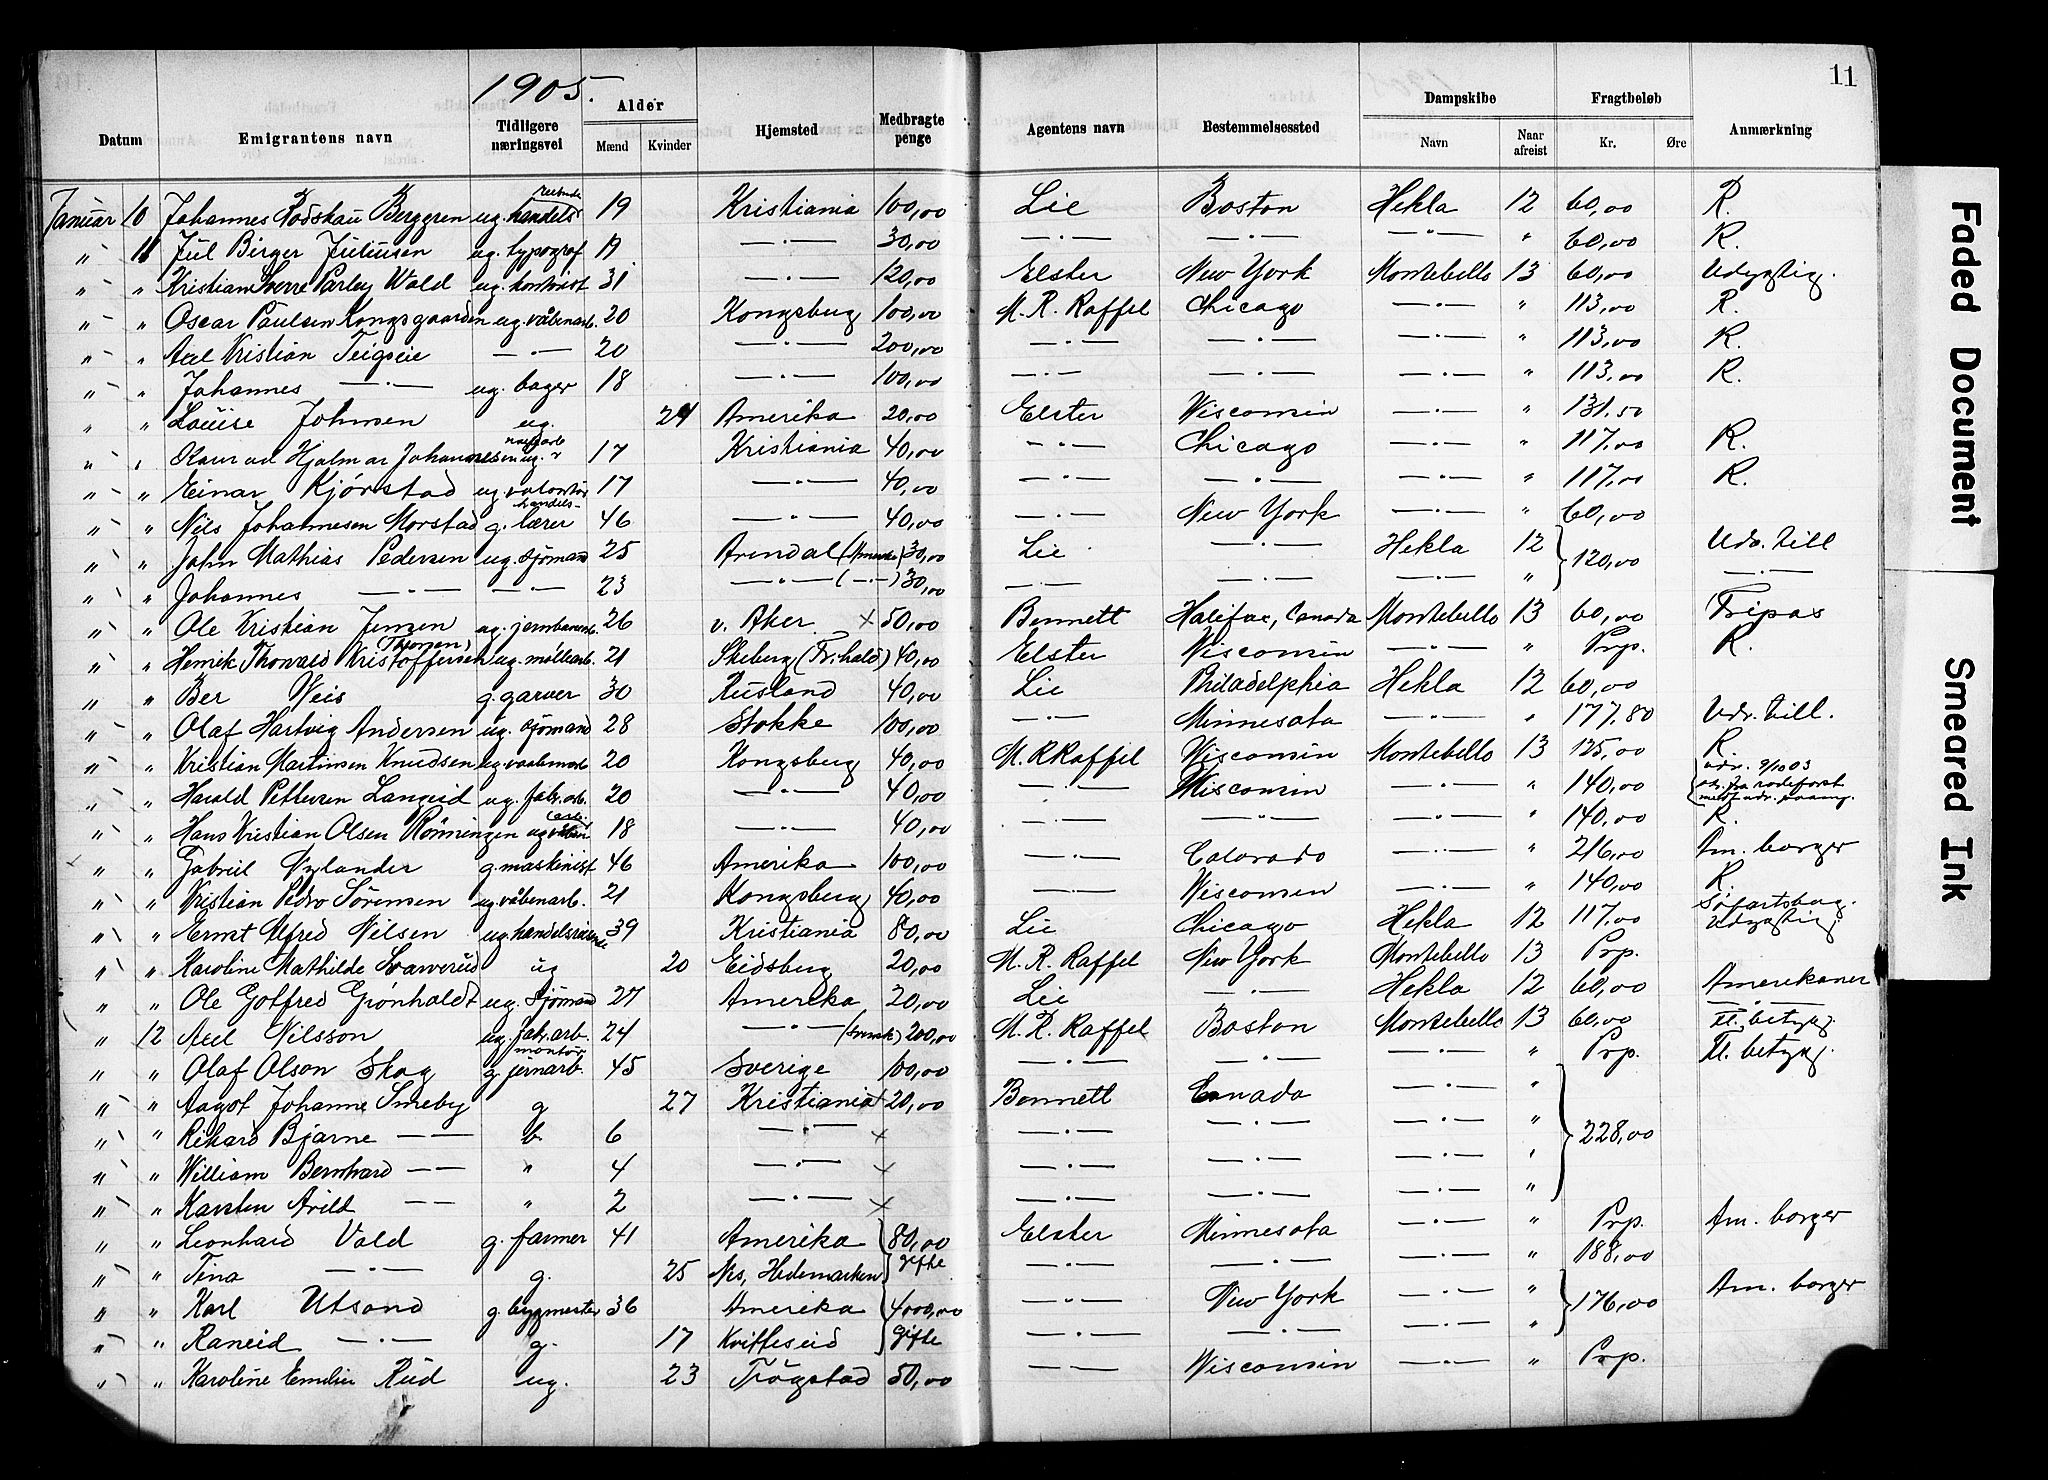 1905.
11
Datum Emigrantens navn Tidligere næringsvei Alder Mænd Kvinder Hjemsted Medbragte penge Agentens navn Bestemmelsessted Dampskibe Navn Naar afreist Fragtbeløb Kr. Øre Anmærkning
Januar 10 Johannes Rodskau Berggren ug. handels 19 Kristiania 100,00 Lie Boston Hekla 12 60,00 R.
" 11 Jul Birger Juliusen ug. typograf 19 —"— 30,00 —"— —"— —"— " 60,00 R.
" " Kristian Sverre Parley Wold ug. kontorist 31 —"— 120,00 Elster New York Montebello 13 60,00 Udygtig.
" " Oscar Paulsen Kongsgaarden ug. våbenarb. 20 Kongsberg 100,00 M. R. Raffel Chicago —"— " 113,00 R.
" " Axel Kristian Teigseie —"— 20 —"— 200,00 —"— —"— —"— " 113,00 R.
" " Johannes —"— ug. bager 18 —"— 100,00 —"— —"— —"— " 113,00 R.
" " Louise Johnsen ug. 24 Amerika 20,00 Elster Wisconsin —"— " 131,50
" " Hjalmar Johannesen ug. 17 Kristiania 40,00 —"— Chicago —"— " 117,00 R.
" " Einar Kjørstad ug. volontør 17 —"— 40,00 —"— —"— —"— " 117,00 R.
" " Nils Johannesen Morstad g. handels-lærer 46 —"— 40,00 —"— New York —"— " 60,00
" " John Mathias Pedersen ug. sjømand 25 Arendal 30,00 Lie —"— Hekla 12 } 120,00 Udr. till
" " Johannes —"— —"— 23 —"— (—"—) 30,00 —"— —"— —"— " —"—
" " Ole Kristian Jensen ug. jernbanearb. 26 v. Aker × 50,00 Bennett Halifax, Canada Montebello 13 60,00 Fripas
" " Henrik Thorvald Kristoffersen (Thorsen) ug. møllearb. 21 Skeberg (Fr.hald) 40,00 Elster Wisconsin —"— " Prp. R.
" " Ber Weis g. garver 30 Rusland 40,00 Lie Philadelphia Hekla 12 60,00
" " Olaf Hartvig Andersen ug. sjømand 28 Stokke 100,00 —"— Minnesota —"— " 177,80 Udr. till.
" " Kristian Martinsen Knudsen ug. vaabenarb 20 Kongsberg 40,00 M. R Raffel Wisconsin Montebello 13 125,00 R.
" " Harald Pettersen Langeid ug. fabr. arb. 20 —"— 40,00 —"— Wisconsin —"— " 140,00 udr. 9/10 03
" " Hans Kristian Olsen Rønningen ug. våben arb. 18 —"— 40,00 —"— —"— —"— " 140,00 R.
" " Gabriel Nylander g. maskinist 46 Amerika 100,00 —"— Colorado —"— " 216,00 Am. borger
" " Kristian Pedro Sørensen ug. våbenarb. 21 Kongsberg 40,00 —"— Wisconsin —"— " 140,00 R.
" " Ernst Alfred Nilsen ug. handelsreisende 39 Kristiania 80,00 Lie Chicago Hekla 12 117,00 Søfartsbog. Udygtig.
" " Karoline Mathilde Svarverud ug 20 Eidsberg 20,00 M. R. Raffel New York Montebello 13 Prp.
" " Ole Gotfred Grønholdt ug. sjømand 27 Amerika 20,00 Lie —"— Hekla 12 60,00 Amerikaner
" 12 Axel Nilsson ug. fabr. arb. 24 —"— (svensk) 200,00 M. R. Raffel Boston Montebello 13 60,00 fl. betygg.
" " Olaf Olson Skog g. montør jernarb. 45 Sverige 100,00 —"— —"— —"— " Prp. fl. betygg.
" " Aagot Johanne Smeby g 27 Kristiania × 20,00 Bennett Canada —"— "
" " Rikard Bjarne —"— b. 6 —"— × —"— —"— —"— " } 228,00
" " William Bernhard —"— " 4 —"— × —"— —"— —"— "
" " Karsten Arild —"— " 2 —"— × —"— —"— —"— "
" " Leonhard Vold g. farmer 41 Amerika } 80,00 Elster Minnesota —"— " Prp. Am. borger
" " Tina —"— g. 25 Nes, Hedemarken gifte —"— —"— —"— " 188,00
" " Karl Utsond g. bygmester 36 Amerika } 4000,00 —"— New York —"— " } 176,00 Am. borger
" " Raneid —"— g. 17 Kvitteseid gifte —"— —"— —"— "
" " Karoline Emilie Rud ug. 23 Trøgstad 50,00 —"— Wisconsin —"— " Prp.
Faded Document
Smeared Ink